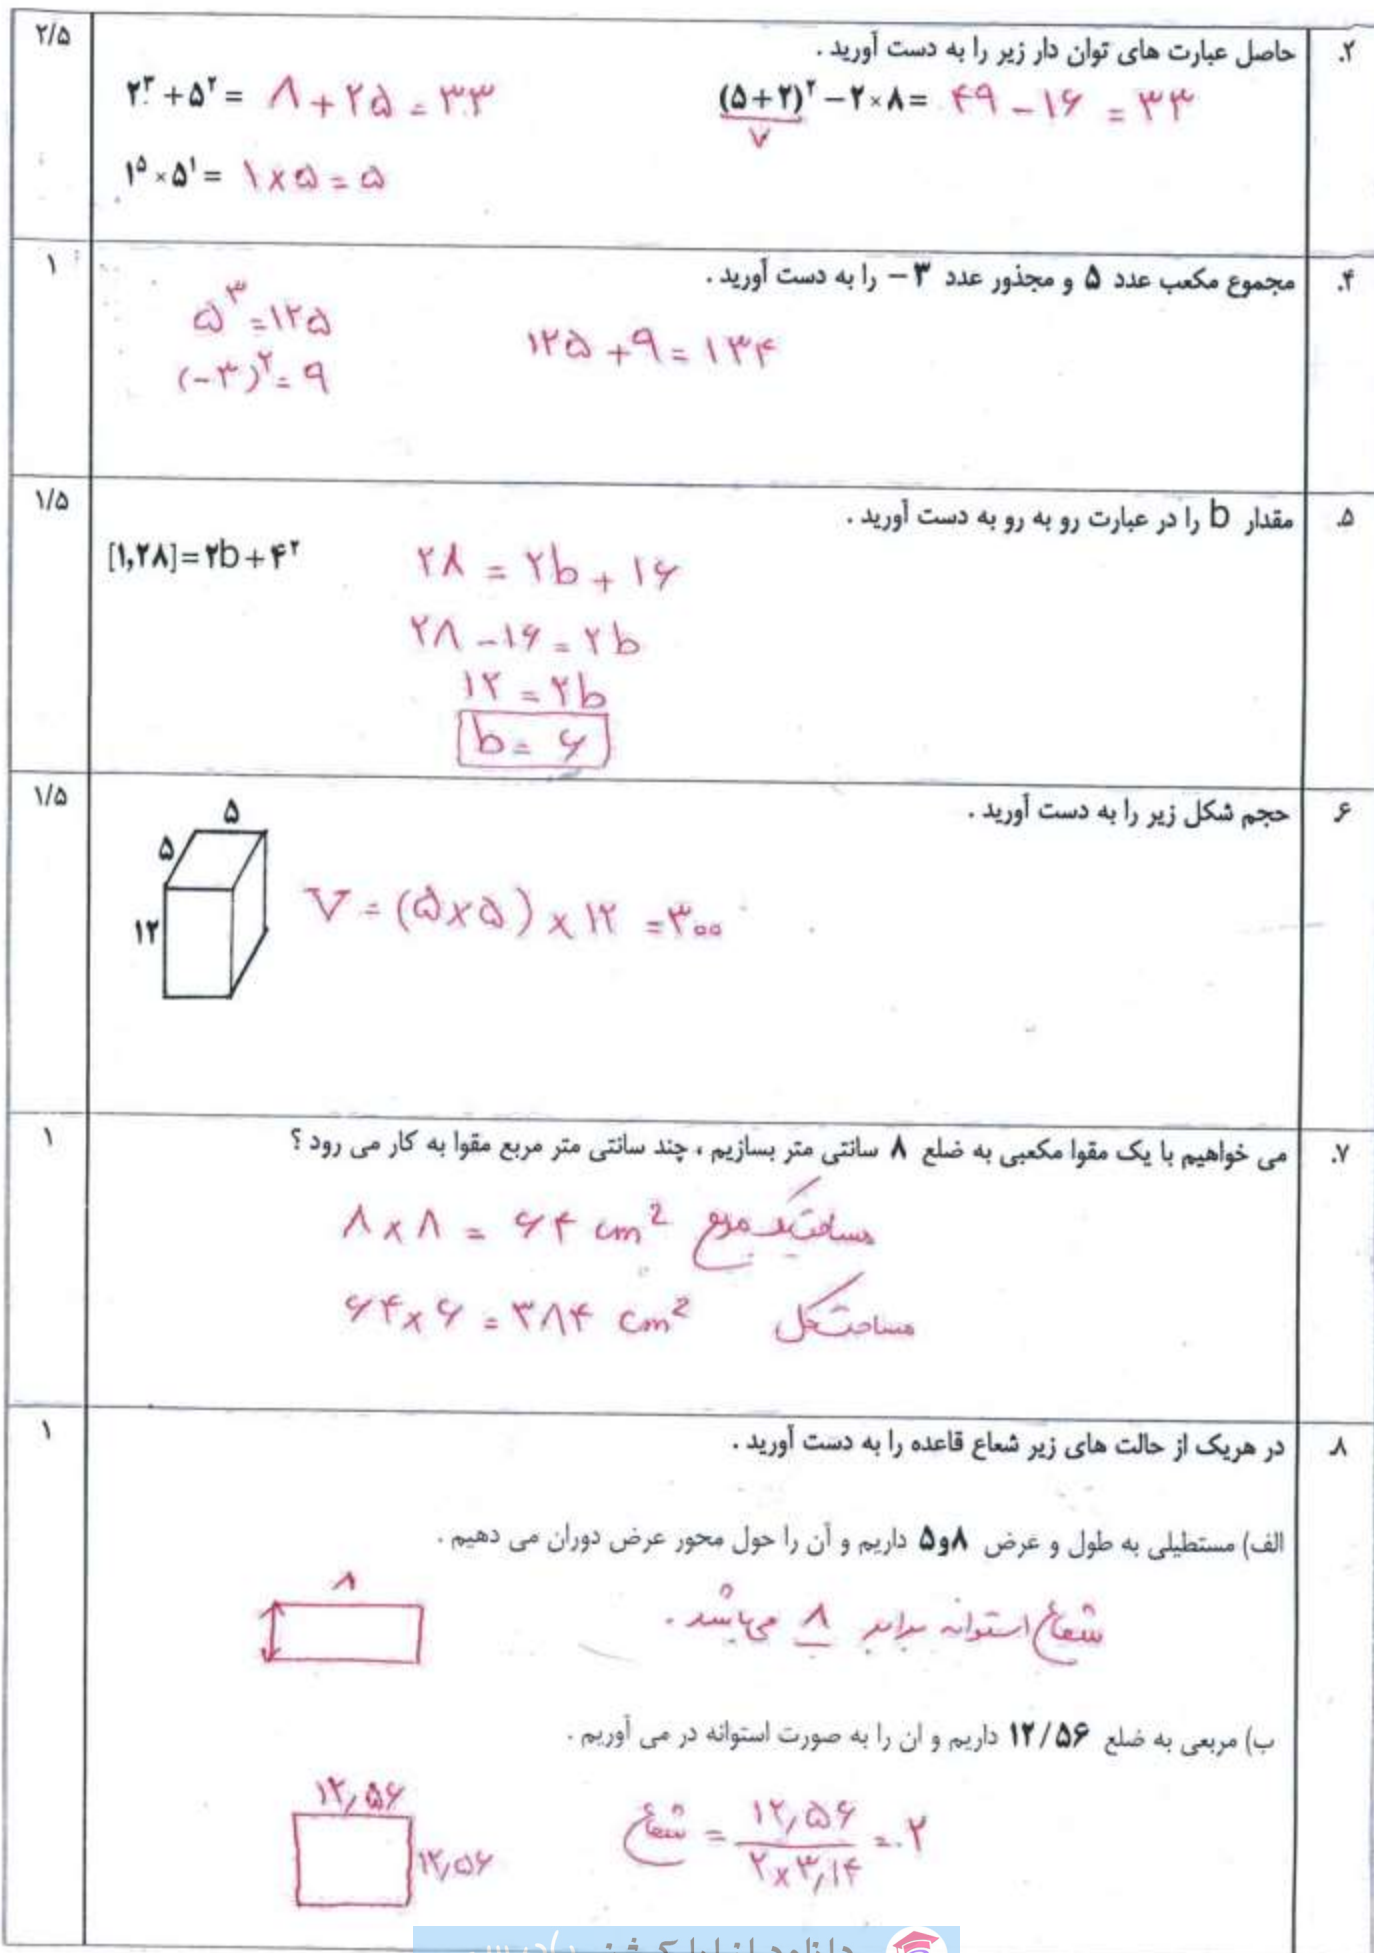 ۲. حاصل عبارت های توان دار زیر را به دست آورید . ۲/۵
۲^۳ + ۵^۲ = ۸ + ۲۵ = ۳۳
(۵+۲)^۲ − ۲×۸ = ۴۹ − ۱۶ = ۳۳
۷
۱^۵ × ۵^۱ = ۱ × ۵ = ۵
۴. مجموع مکعب عدد ۵ و مجذور عدد ۳ − را به دست آورید . ۱
۵^۳ = ۱۲۵
(−۳)^۲ = ۹
۱۲۵ + ۹ = ۱۳۴
۵. مقدار b را در عبارت رو به رو به دست آورید . ۱/۵
[۱,۲۸] = ۲b + ۴^۲
۲۸ = ۲b + ۱۶
۲۸ − ۱۶ = ۲b
۱۲ = ۲b
b = ۶
۶ حجم شکل زیر را به دست آورید . ۱/۵
۵
۵
۱۲
V = (۵×۵) × ۱۲ = ۳۰۰
۷. می خواهیم با یک مقوا مکعبی به ضلع ۸ سانتی متر بسازیم ، چند سانتی متر مربع مقوا به کار می رود ؟ ۱
۸ × ۸ = ۶۴ cm² مساحت یک مربع
۶۴ × ۶ = ۳۸۴ cm² مساحت کل
۸ در هریک از حالت های زیر شعاع قاعده را به دست آورید . ۱
الف) مستطیلی به طول و عرض ۸و۵ داریم و آن را حول محور عرض دوران می دهیم .
۸
شعاع استوانه برابر ۸ می باشد .
ب) مربعی به ضلع ۱۲/۵۶ داریم و ان را به صورت استوانه در می آوریم .
۱۲,۵۶
۱۲,۵۶
شعاع = ۱۲,۵۶ / ۲×۳,۱۴ = ۲